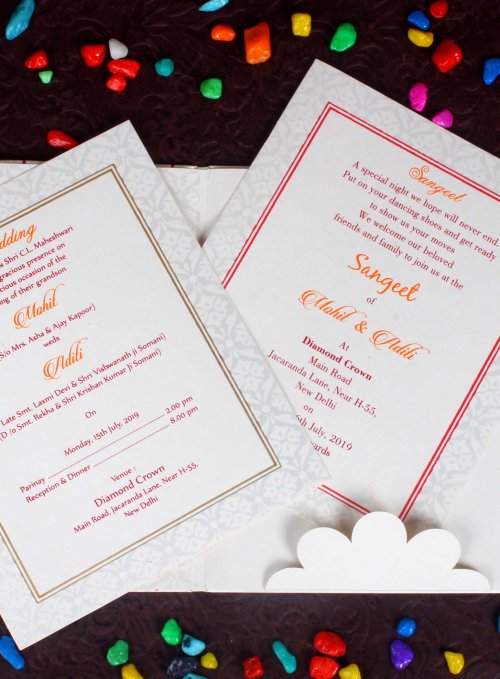 edding
& Shri C.L. Maheshwari
gracious presence on
occasion of the
ing of their grandson
Mohit
S/o Mrs. Asha & Ajay Kapoor)
weds
Aditi
Late Smt. Laxmi Devi & Shri Vishwanath Ji Somani)
D /o Smt. Rekha & Shri Krishan Kumar Ji Somani)
On
Monday, 15th July, 2019
Parinay 2.00 pm
Reception & Dinner 8.00 pm
Venue :
Diamond Crown
Main Road, Jacaranda Lane, Near H-55,
New Delhi
Sangeet
A special night we hope will never end
Put on your dancing shoes and get ready
to show us your moves
We welcome our beloved
friends and family to join us at the
Sangeet
of
Mohit & Aditi
At
Diamond Crown
Main Road
Jacaranda Lane, Near H-55,
New Delhi
July, 2019